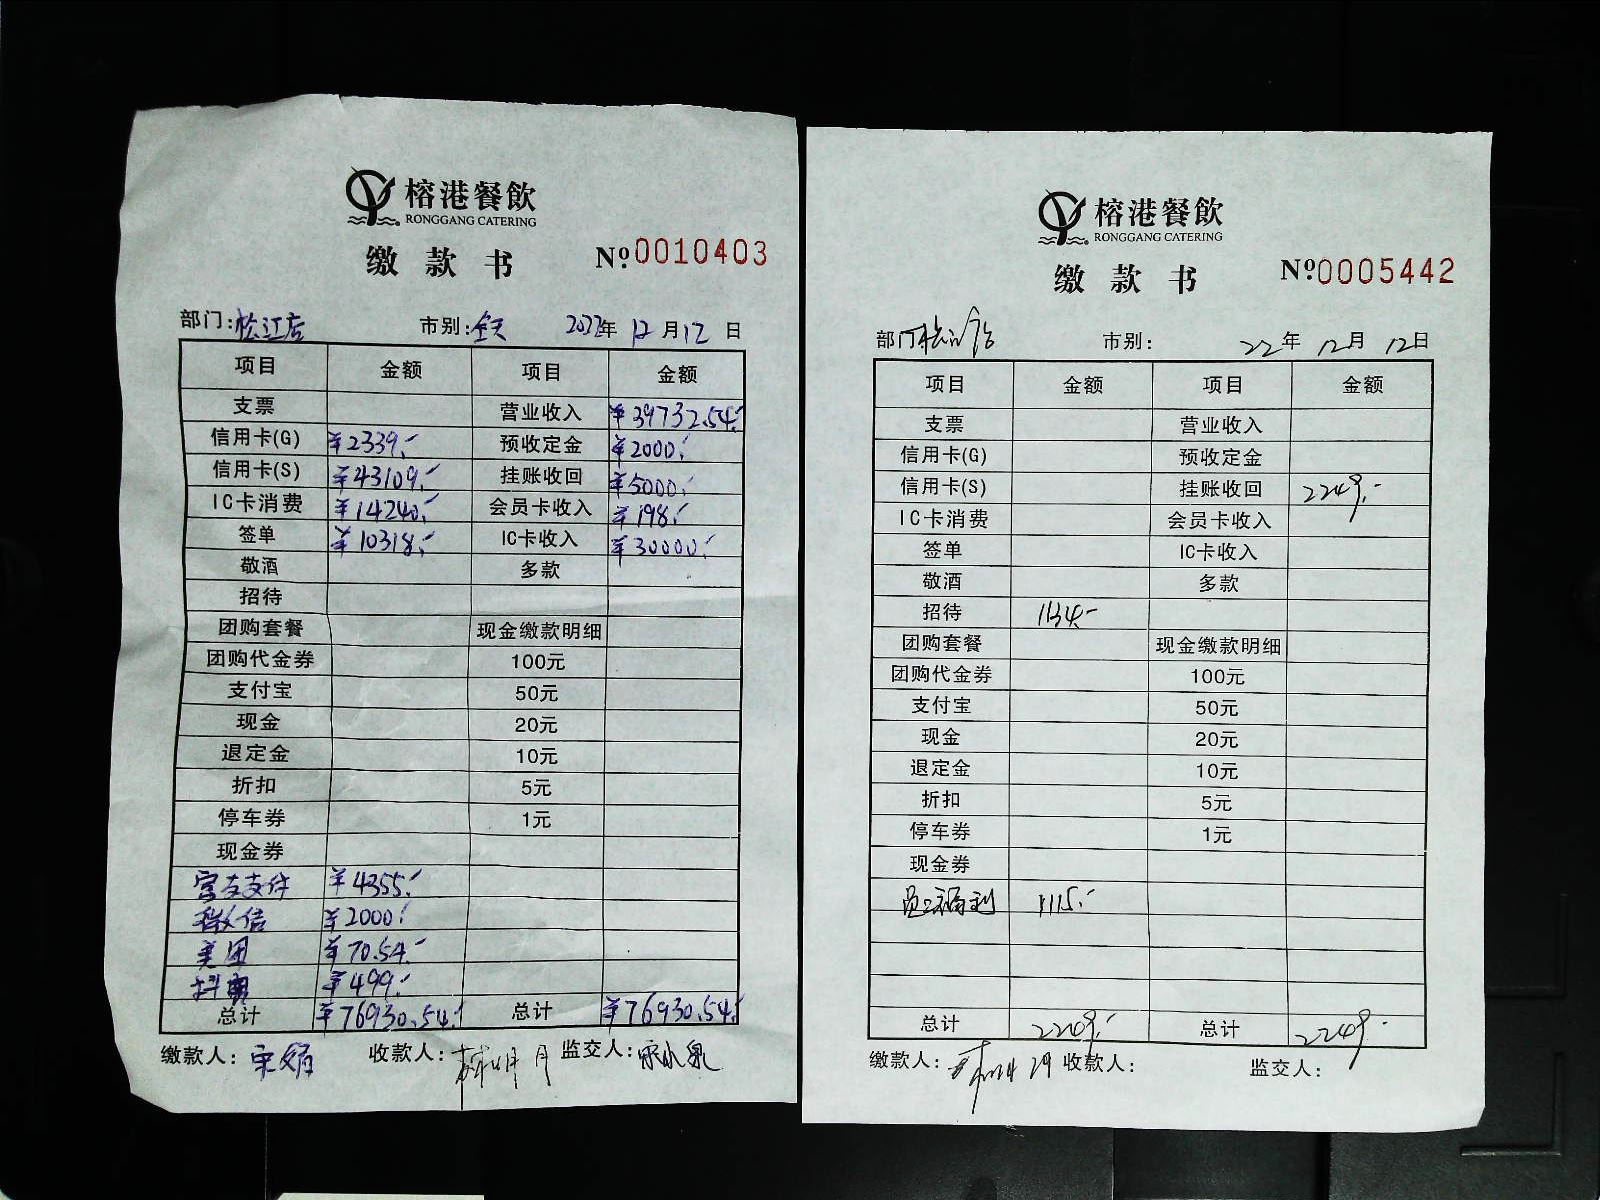 榕港餐飲
RONGGANG CATERING
缴款书 Nº0010403
部门:松江店 市别:全天 2022年12月12日
项目 金额 项目 金额
支票 营业收入 ¥39732.54.-
信用卡(G) ¥2339.- 预收定金 ¥2000.-
信用卡(S) ¥43109.- 挂账收回 ¥5000.-
IC卡消费 ¥14240.- 会员卡收入 ¥198.-
签单 ¥10318.- IC卡收入 ¥30000.-
敬酒 多款
招待
团购套餐 现金缴款明细
团购代金券 100元
支付宝 50元
现金 20元
退定金 10元
折扣 5元
停车券 1元
现金券
支付 ¥4355.-
微信 ¥2000.-
美团 ¥70.54.-
抖音 ¥499.-
总计 ¥76930.54.- 总计 ¥76930.54.-
缴款人: 收款人: 监交人:
榕港餐飲
RONGGANG CATERING
缴款书 Nº0005442
部门松江店 市别: 22年12月12日
项目 金额 项目 金额
支票 营业收入
信用卡(G) 预收定金
信用卡(S) 挂账收回 2249.-
IC卡消费 会员卡收入
签单 IC卡收入
敬酒 多款
招待 1134.-
团购套餐 现金缴款明细
团购代金券 100元
支付宝 50元
现金 20元
退定金 10元
折扣 5元
停车券 1元
现金券
员工福利 1115.-
总计 2249.- 总计 2249.-
缴款人: 收款人: 监交人: